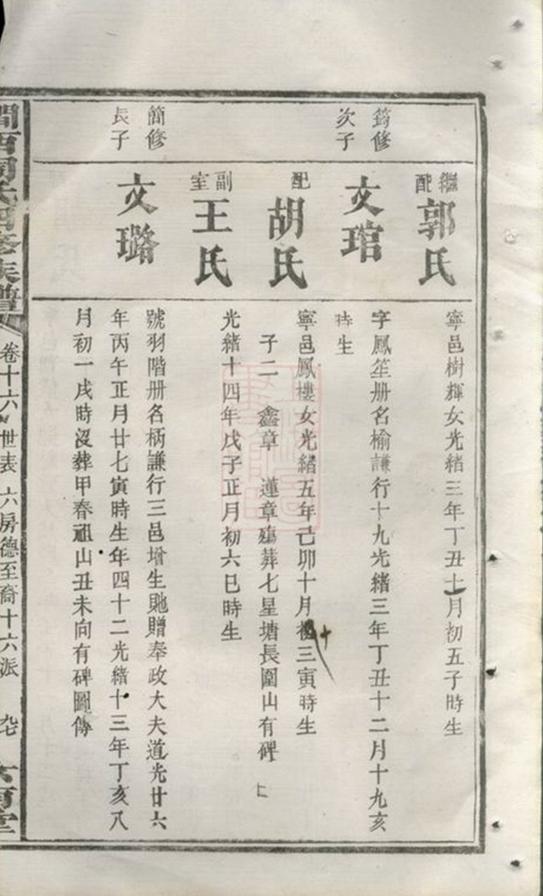 繼配
郭氏
寧邑樹輝女光緒三年丁丑十月初五子時生
筠修次子
文琯
字鳳笙册名榆謙行十九光緒三年丁丑十二月十九亥
時生
配
胡氏
寧邑鳳樓女光緒五年己卯十月初三寅時生
十
子二 鑫章 蓮章 葬七星塘長圍山有碑
副室
王氏
光緒十四年戊子正月初六巳時生
簡修長子
文璐
號羽階册名柄謙行三邑增生貤贈奉政大夫道光廿六
年丙午正月廿七寅時生年四十二光緒十三年丁亥八
月初一戌時沒葬甲春祖山丑未向有碑圖傳
卷十六 世表 六房德至裔十六派